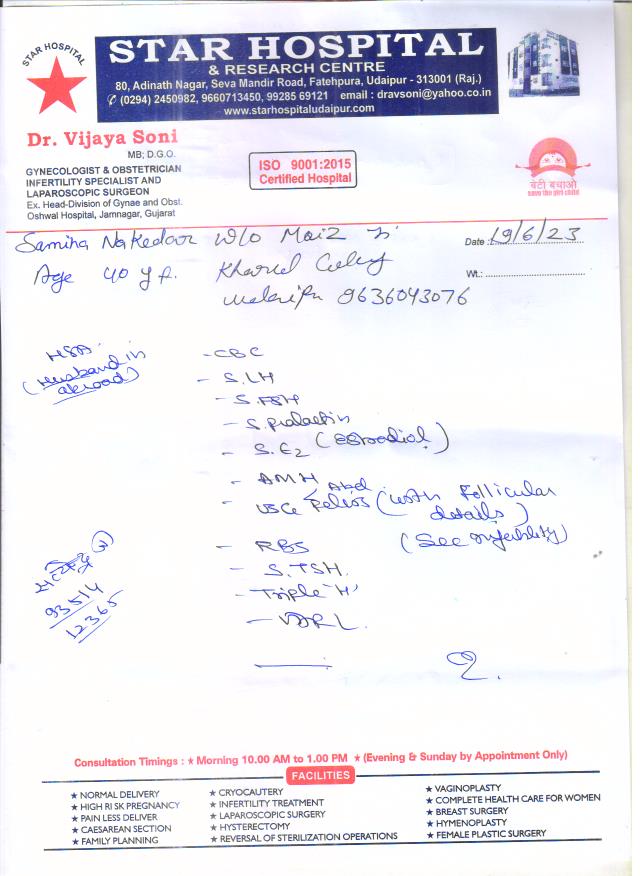 STAR HOSPITAL
STAR HOSPITAL
& RESEARCH CENTRE
80, Adinath Nagar, Seva Mandir Road, Fatehpura, Udaipur - 313001 (Raj.)
(0294) 2450982, 9660713450, 99285 69121 email : dravsoni@yahoo.co.in
www.starhospitaludaipur.com
Dr. Vijaya Soni
MB; D.G.O.
GYNECOLOGIST & OBSTETRICIAN
INFERTILITY SPECIALIST AND
LAPAROSCOPIC SURGEON
Ex. Head-Division of Gynae and Obst.
Oshwal Hospital, Jamnagar, Gujarat
ISO 9001:2015
Certified Hospital
बेटी बचाओ
Samina Nakedar W/O Moiz
Date : 19/6/23
Age 40 yr.
Wt.:
9636043076
HSA
(Husband in
abroad)
- CBC
- S.LH
- S.FSH
- S.Prolactin
- S.E2 (Estradiol)
- AMH
- USG Abd Pelvis (with Follicular
details)
(See infertility)
- RBS
- S.TSH
- Triple 'H'
- VDRL
93514
12365
Consultation Timings : ★ Morning 10.00 AM to 1.00 PM ★ (Evening & Sunday by Appointment Only)
FACILITIES
★ NORMAL DELIVERY
★ HIGH RI SK PREGNANCY
★ PAIN LESS DELIVER
★ CAESAREAN SECTION
★ FAMILY PLANNING
★ CRYOCAUTERY
★ INFERTILITY TREATMENT
★ LAPAROSCOPIC SURGERY
★ HYSTERECTOMY
★ REVERSAL OF STERILIZATION OPERATIONS
★ VAGINOPLASTY
★ COMPLETE HEALTH CARE FOR WOMEN
★ BREAST SURGERY
★ HYMENOPLASTY
★ FEMALE PLASTIC SURGERY